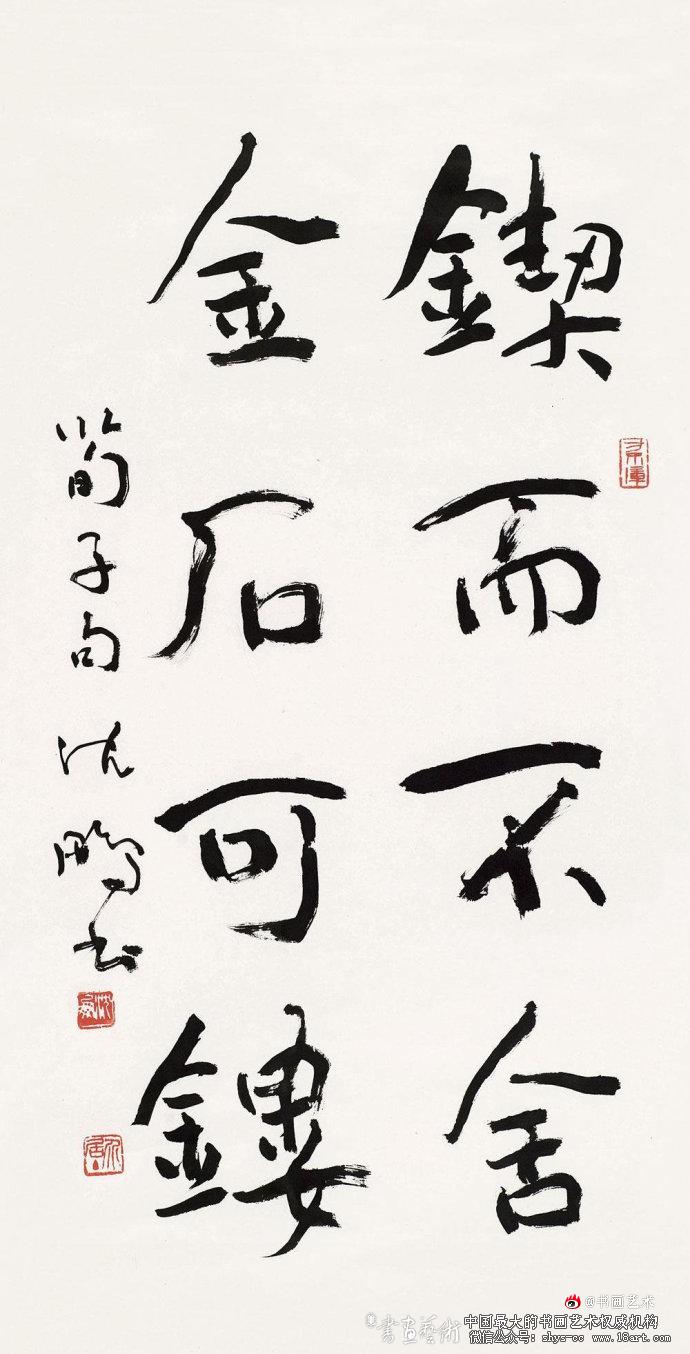 鍥而不舍
金石可鏤
荀子句 沈鵬书
沈鵬
@书画艺术
書画藝術
中国最大的书画艺术权威机构
微信公众号：shys-cc www.18art.com